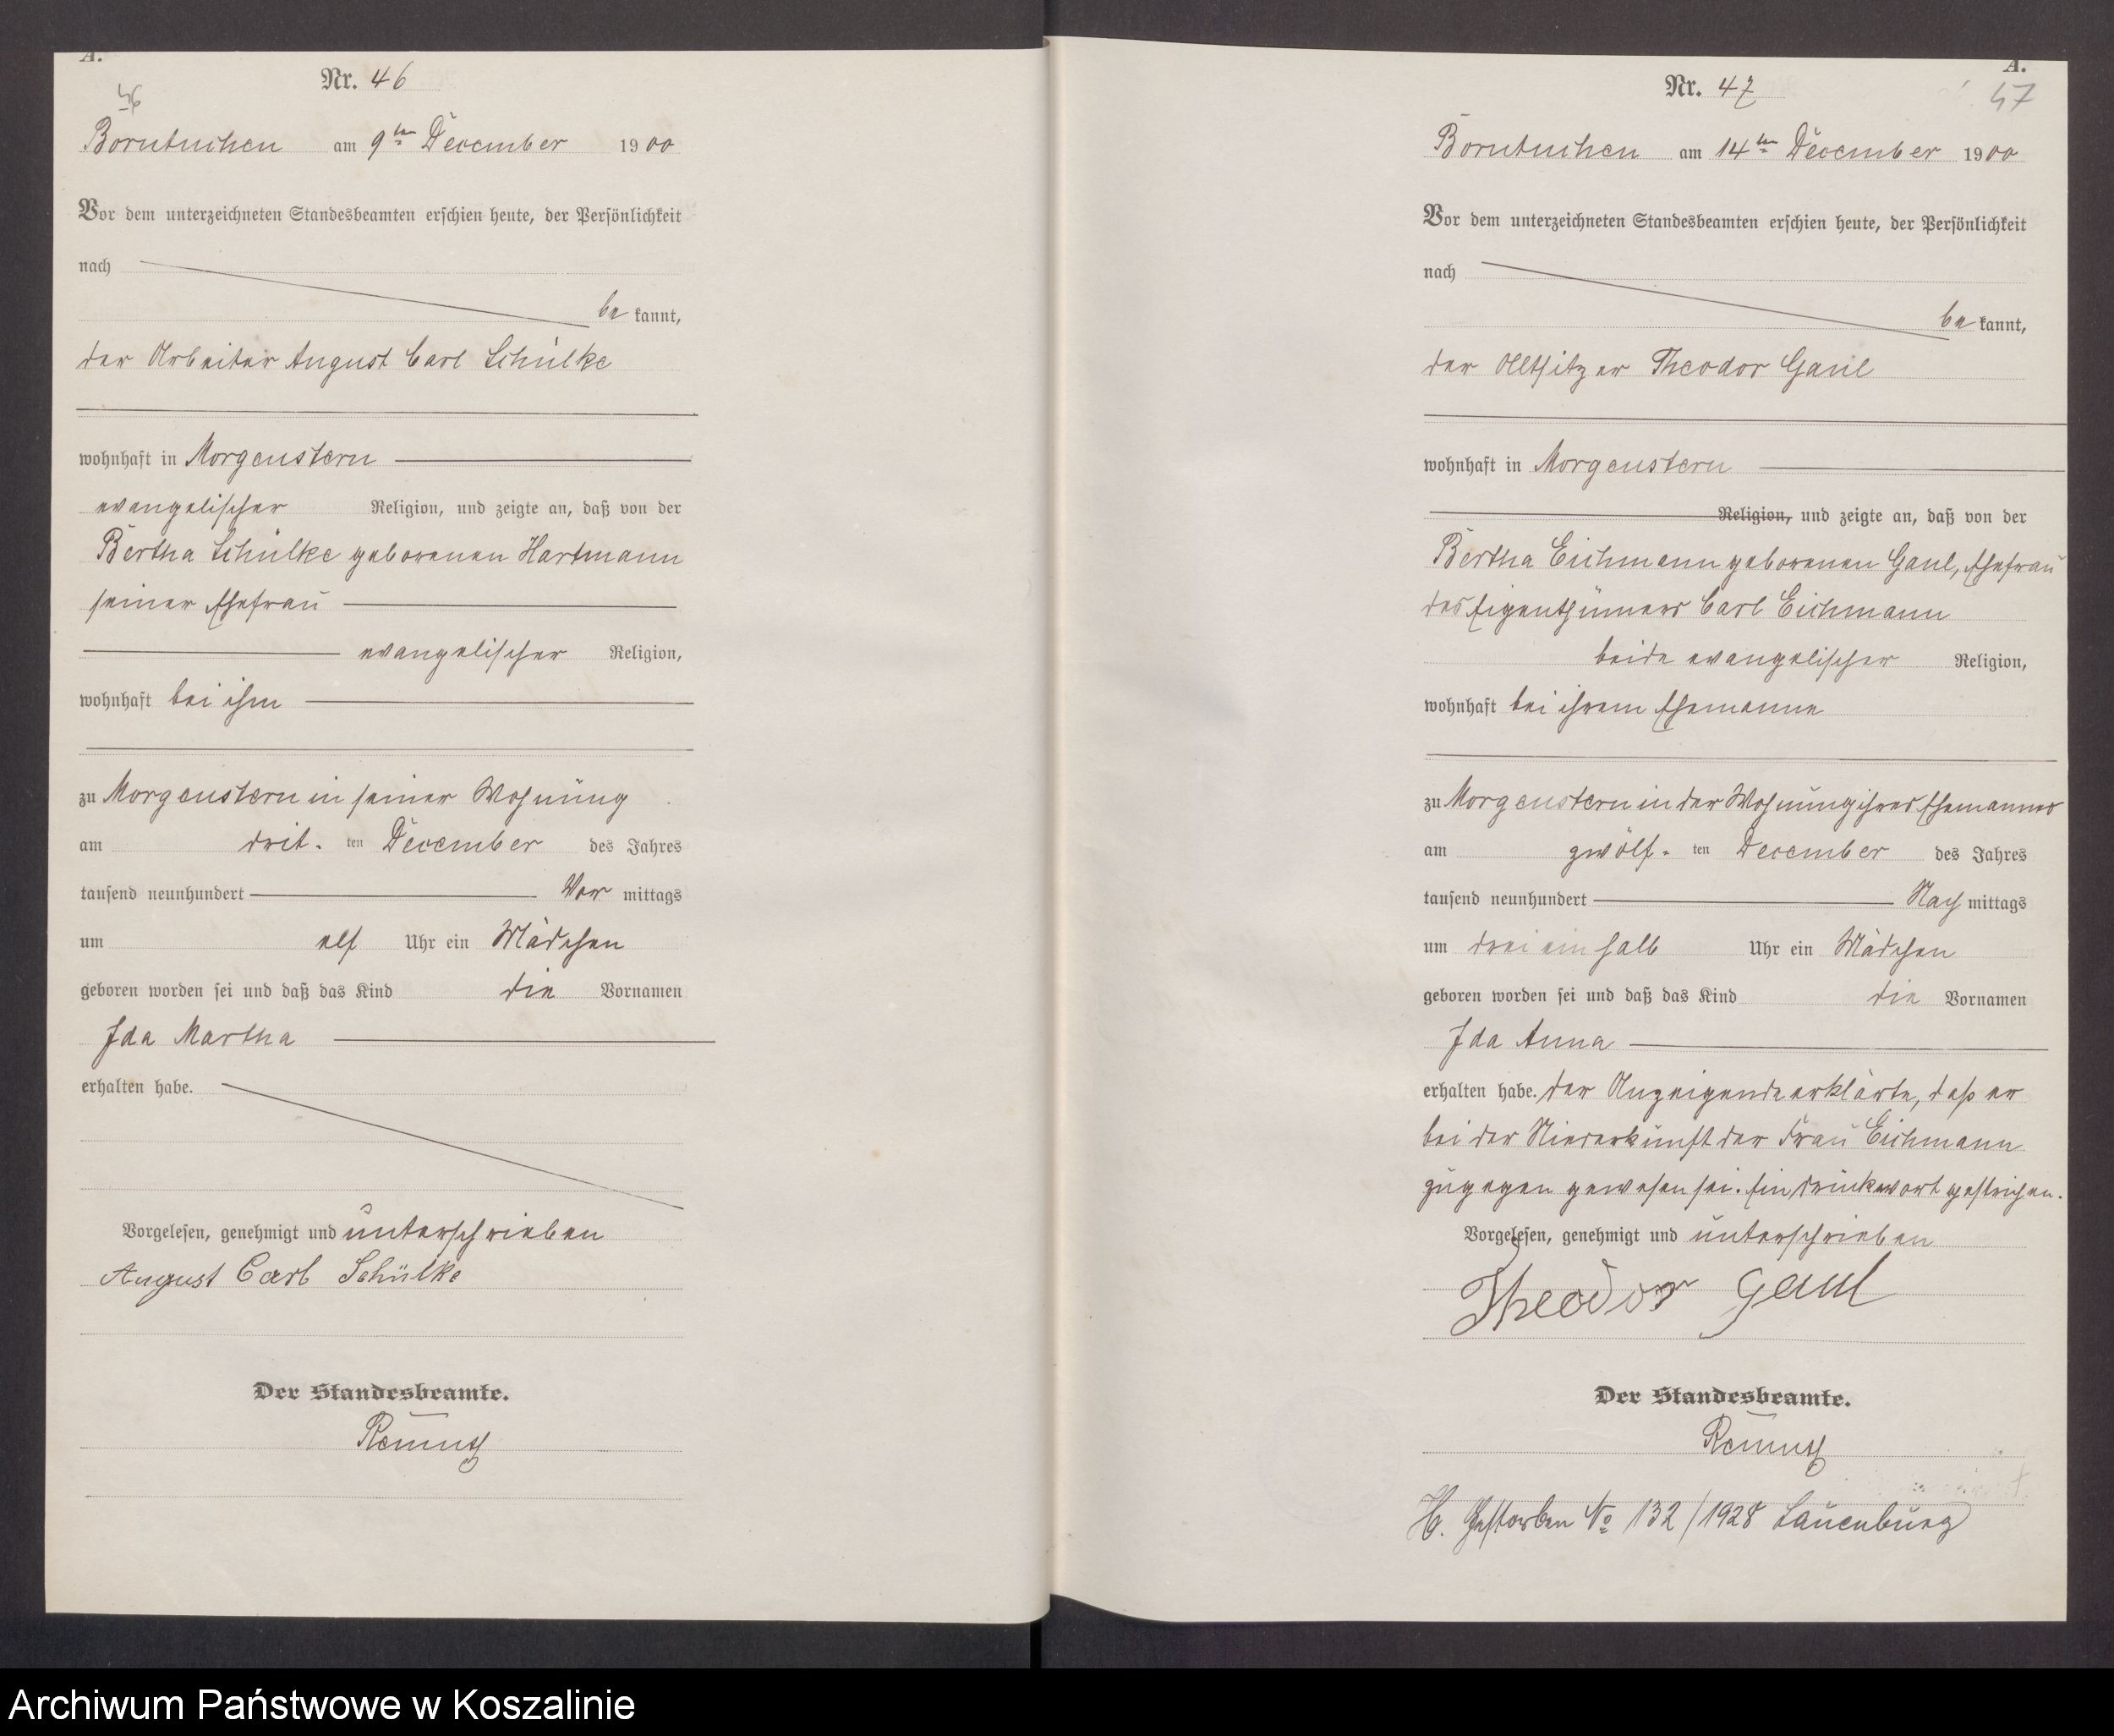 A.
46
Nr. 46
Borntuchen am 9ten December 1900
Vor dem unterzeichneten Standesbeamten erschien heute, der Persönlichkeit
nach
be kannt,
der Arbeiter August Carl Schülke
wohnhaft in Morgenstern
evangelischer Religion, und zeigte an, daß von der
Bertha Schülke geborenen Hartmann
seiner Ehefrau
evangelischer Religion,
wohnhaft bei ihm
zu Morgenstern in seiner Wohnung
am drit. ten December des Jahres
tausend neunhundert Vor mittags
um elf Uhr ein Mädchen
geboren worden sei und daß das Kind die Vornamen
Ida Martha
erhalten habe.
Vorgelesen, genehmigt und unterschrieben
August Carl Schülke
Der Standesbeamte.
A.
47
Nr. 47
Borntuchen am 14ten December 1900
Vor dem unterzeichneten Standesbeamten erschien heute, der Persönlichkeit
nach
be kannt,
der Altsitzer Theodor Gaul
wohnhaft in Morgenstern
Religion, und zeigte an, daß von der
Bertha Eichmann geborenen Gaul, Ehefrau
des Eigenthümers Carl Eichmann
beide evangelischer Religion,
wohnhaft bei ihrem Ehemanne
zu Morgenstern in der Wohnung ihres Ehemannes
am zwölf. ten December des Jahres
tausend neunhundert Nach mittags
um drei ein halb Uhr ein Mädchen
geboren worden sei und daß das Kind die Vornamen
Ida Anna
erhalten habe. der Anzeigende erklärte, daß er
bei der Niederkunft der Frau Eichmann
zugegen gewesen sei. Ein Druckwort gestrichen.
Vorgelesen, genehmigt und unterschrieben
Theodor Gaul
Der Standesbeamte.
H. Gestorben No 132/1928 Lauenburg
Archiwum Państwowe w Koszalinie